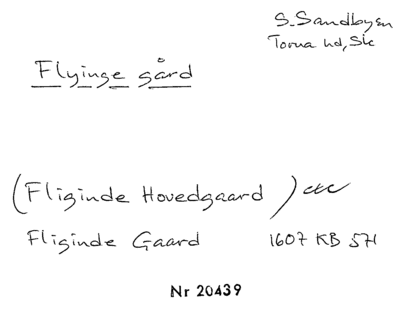 S. Sandbysn
Torna hd, Sk
Flyinge gård
(Fliginde Hovedgaard)
Fliginde Gaard 1607 KB 571
Nr 20439